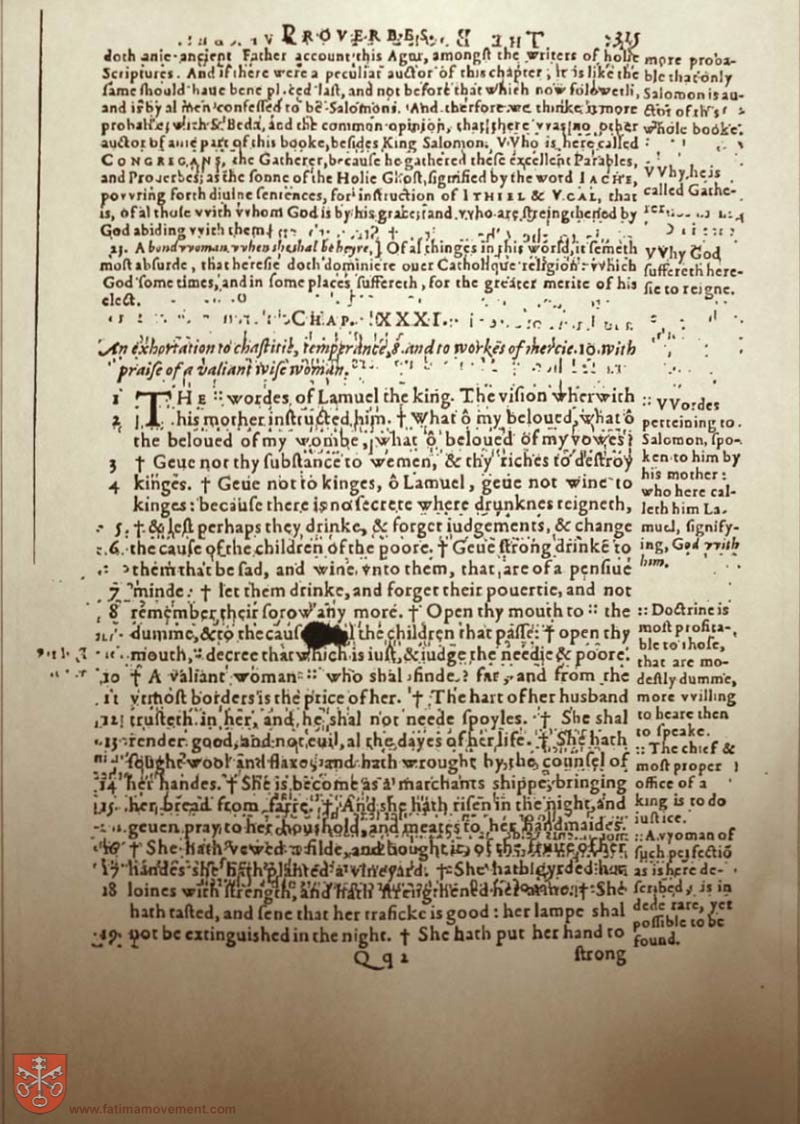 PROVERBES. 315
doth anie ancient Father account this Agur, amongst the writers of holie
Scriptures. And if there were a peculiar auctor of this chapter, it is like the
same should haue bene placed last, and not before that which now foloweth,
and is by al men confessed to be Salomons. And therfore we thinke it more
probable, with S. Beda, and the common opinion, that there vvas no other
auctor of anie part of this booke, besides King Salomon. VVho is here called
CONGREGANS, the Gatherer, because he gathered these excellent Parables,
and Prouerbes; as the sonne of the Holie Ghost, signified by the word IACHE,
povvring forth diuine sentences, for instruction of ITHIEL & VCAL, that
is, of al those vvith vvhom God is by his grace; and vvho are strengthened by
God abiding vvith them.
23. A bondvvoman, vvhen she shal be heyre.] Of al thinges in this world, it semeth
most absurde, that heresie doth dominiere ouer Catholique religion: vvhich
God some times, and in some places suffereth, for the greater merite of his
elect.
more proba-
ble that only
Salomon is au-
ctor of this
whole booke.
VVhy he is
called Gathe-
rer.
VVhy God
suffereth here-
sie to reigne.
CHAP. XXXI.
An exhortation to chastitie, temperance, 8. and to workes of mercie. 10. with
praise of a valiant wise woman.
1 THE :: wordes of Lamuel the king. The vision wherwith
2 his mother instructed him. † What ô my beloued, what ô
the beloued of my wombe, what ô beloued of my vowes?
3 † Geue not thy substance to wemen, & thy riches to destroy
4 kinges. † Geue not to kinges, ô Lamuel, geue not wine to
kinges: because there is no secrete where drunknes reigneth,
5. † & lest perhaps they drinke, & forget iudgements, & change
6. the cause of the children of the poore. † Geue strong drinke to
them that be sad, and wine vnto them, that are of a pensiue
7 minde: † let them drinke, and forget their pouertie, and not
8 remember their sorow any more. † Open thy mouth to :: the
dumme, & to the caus l the children that passe: † open thy
mouth, :: decree that which is iust, & iudge the needie & poore.
10 † A valiant woman :: who shal finde? far, and from the
11 vtmost borders is the price of her. † The hart of her husband
12 trusteth in her, and he shal not neede spoyles. † She shal
13 render good, and not euil, al the dayes of her life. † She hath
sought wool and flaxe, and hath wrought by the counsel of
14 her handes. † She is become as a marchants shippe, bringing
15. her bread from farre. † And she hath risen in the night, and
geuen pray to her houshold, and meates to her handmaides.
16 † She hath vewed a filde, and bought it, of the fruite of her
17 handes she hath planted a vineyard. † She hath gyrded her
18 loines with strength, and hath strengthened her arme. † She
hath tasted, and sene that her traficke is good: her lampe shal
19. not be extinguished in the night. † She hath put her hand to
Qq 2 strong
:: VVordes
perteining to
Salomon, spo-
ken to him by
his mother:
who here cal-
leth him La-
muel, signify-
ing, God with
him.
:: Doctrine is
most profita-
ble to those,
that are mo-
destly dumme,
more vvilling
to heare then
to speake.
:: The chief &
most proper
office of a
king is to do
iustice.
:: A vvoman of
such perfectiõ
as is here de-
scribed, is in
dede rare, yet
possible to be
found.
www.fatimamovement.com